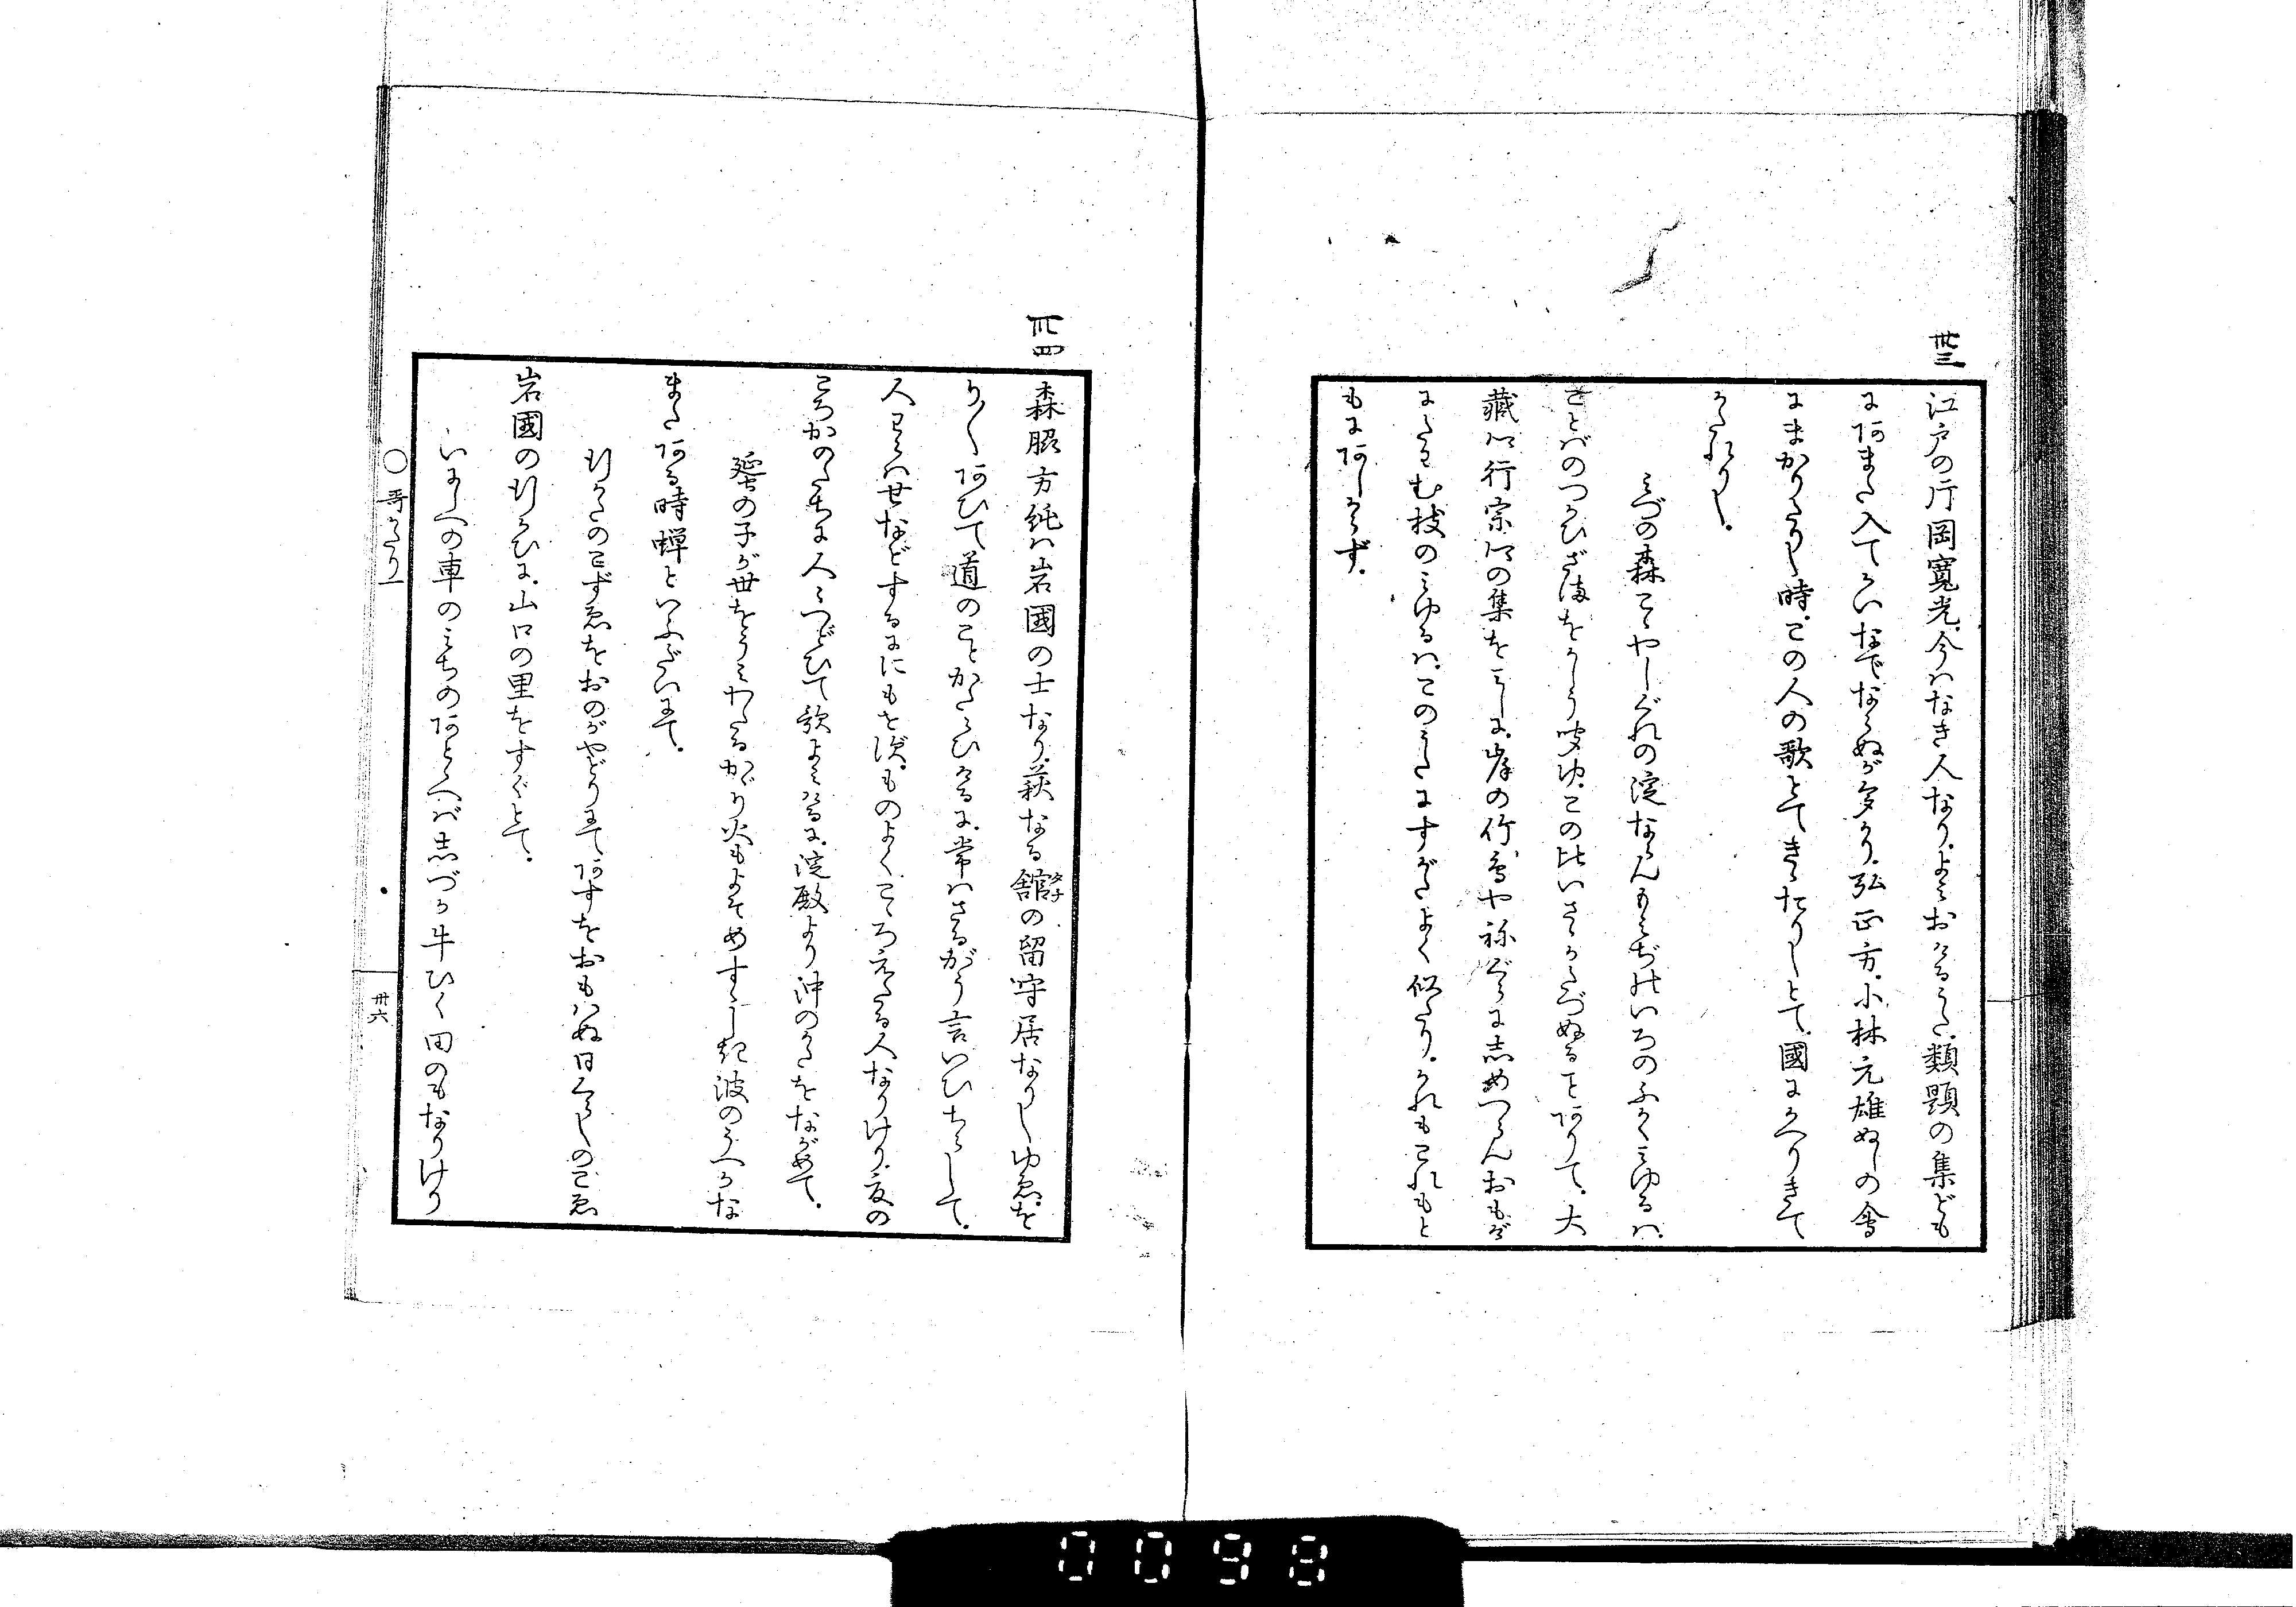 卅三
江戸の片岡寛光、今ハなき人なり、よミおけるうた、類題の集ども
にあまた入てかいなでならぬが多かり、弘正方、小林元雄ぬしの會
にまかりたりし時、この人の歌とてきゝたりしとて、國にかへりきて
かたれりし、
ミづの森こゝやしぐれの淀ならんもミぢのいろのふかくミゆるハ、
ことバのつかひざまをかしう聞ゆ、この比いさゝかたづぬることありて、大
藏卿行宗卿の集をミしに、岸の竹
の集をミしに志めつらんおもぞ
にたわむ枝のミゆるハ、このうたにすがたよく似たり、かれもこれもと
もにあしからず、
卅四
森脇方純ハ岩國の士なり、萩なる舘の留守居なりしゆゑ、を
り〳〵あひて道のことかたらひけるに、常ハさるがう言いひちらして、
人わらハせなどするににもを
ず、ものよくこゝろえたる人なりけり、夏の
ころかのたちに人々つどひて歌よミけるに、淀殿より沖のかたをながめて、
蜑の子が世をうミわたるかゞり火もよそめすゞしき波のうへかな
またある時蝉といふだいにて、
行かたの三ずゑをおのがやどりにてあすをおもハぬ日ぐらしのこゑ
岩國の行かひに、山口の里をすぐとて、
いにしへの車のミちのあととへバ志づが牛ひく田のもなりけり
〇哥かたり一
卅六
0098